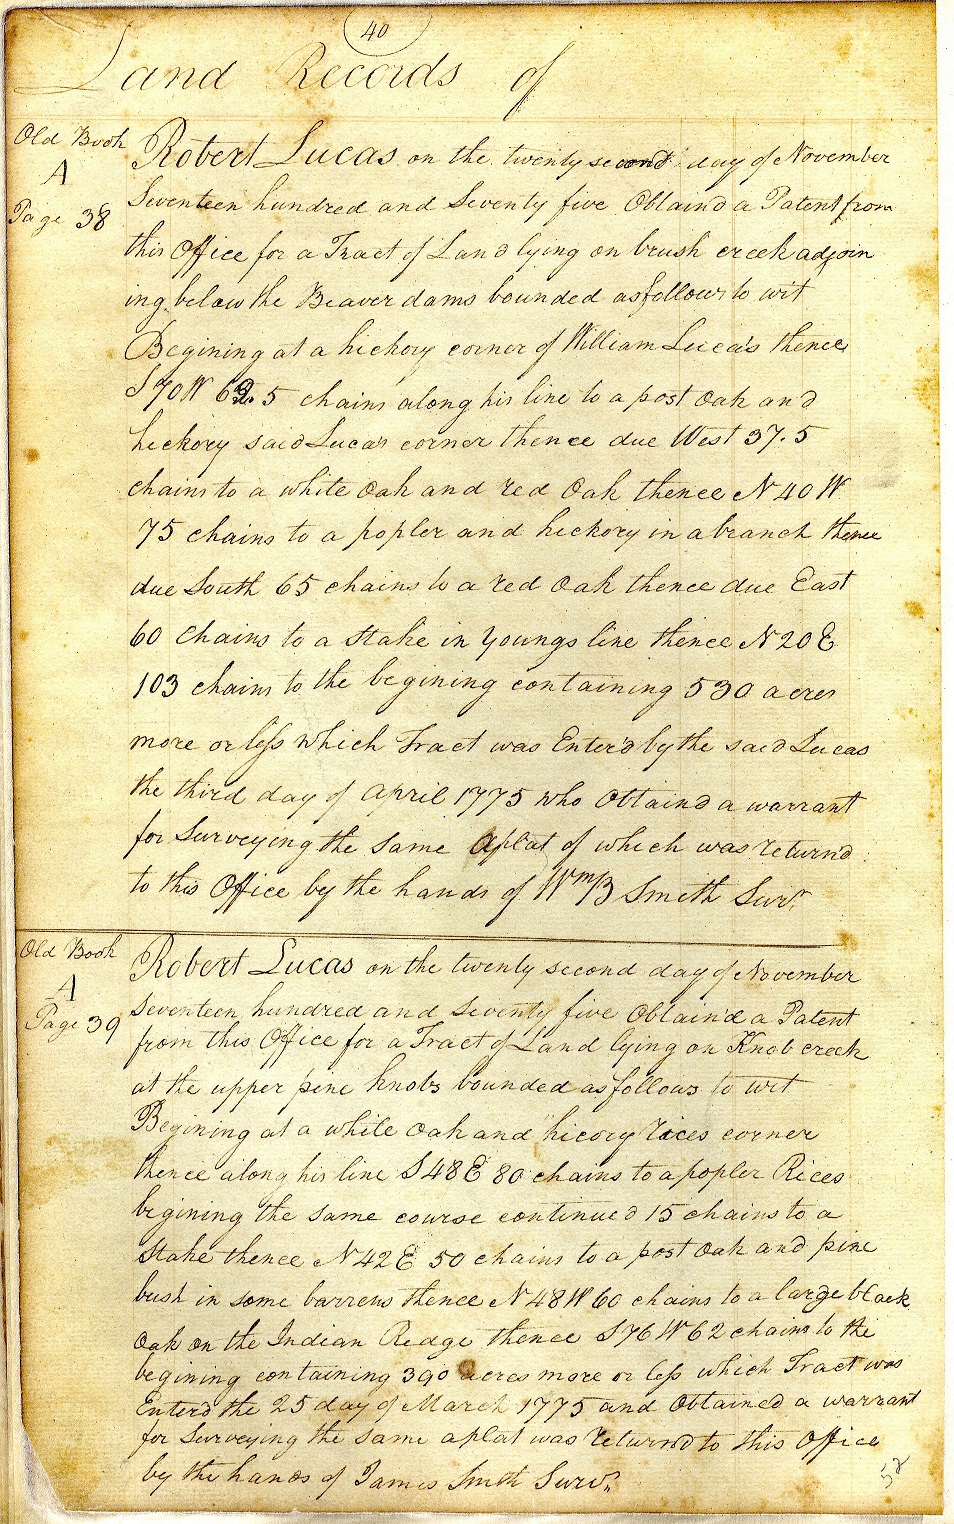 40
Land Records of
Old Book
A
Page 38
Robert Lucas on the twenty second day of November
Seventeen hundred and Seventy five Obtain'd a Patent from
this Office for a Tract of Land lying on brush creek adjoin
ing below the Beaver dams bounded as follows to wit
Begining at a hickory corner of William Lucas's thence
S 70 W 62.5 chains along his line to a post oak and
hickory said Lucas corner thence due West 37.5
chains to a white oak and red oak thence N 40 W
75 chains to a popler and hickory in a branch thence
due South 65 chains to a red oak thence due East
60 chains to a Stake in Youngs line thence N 20 E
103 chains to the begining containing 530 acres
more or less which Tract was Enter'd by the said Lucas
the third day of April 1775 who obtaind a warrant
for Surveying the same a plat of which was return'd
to this Office by the hands of Wm B Smith Survr.
Old Book
A
Page 39
Robert Lucas on the twenty second day of November
Seventeen hundred and Seventy five Obtain'd a Patent
from this Office for a Tract of Land lying on Knob creek
at the upper pine knobs bounded as follows to wit
Begining at a white oak and hicory Rices corner
thence along his line S 48 E 80 chains to a popler Rices
begining the same course continued 15 chains to a
Stake thence N 42 E 50 chains to a post oak and pine
bush in some barrens thence N 48 W 60 chains to a large black
oak on the Indian Redge thence S 76 W 62 chains to the
begining containing 390 acres more or less which Tract was
Enterd the 25 day of March 1775 and Obtained a warrant
for Surveying the same a plat was returnd to this Office
by the hands of James Smith Survr.
52